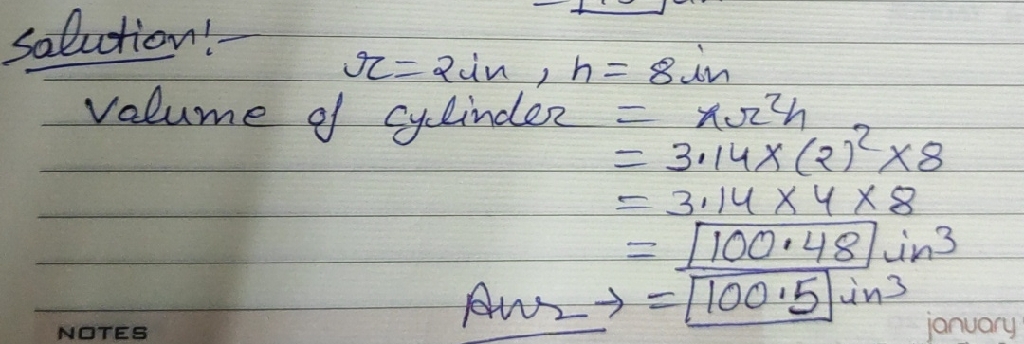 Solution:-
r=2in, h=8in
Volume of cylinder = πr²h
= 3.14×(2)²×8
= 3.14×4×8
= 100.48 in³
Ans → = 100.5 in³
NOTES
january